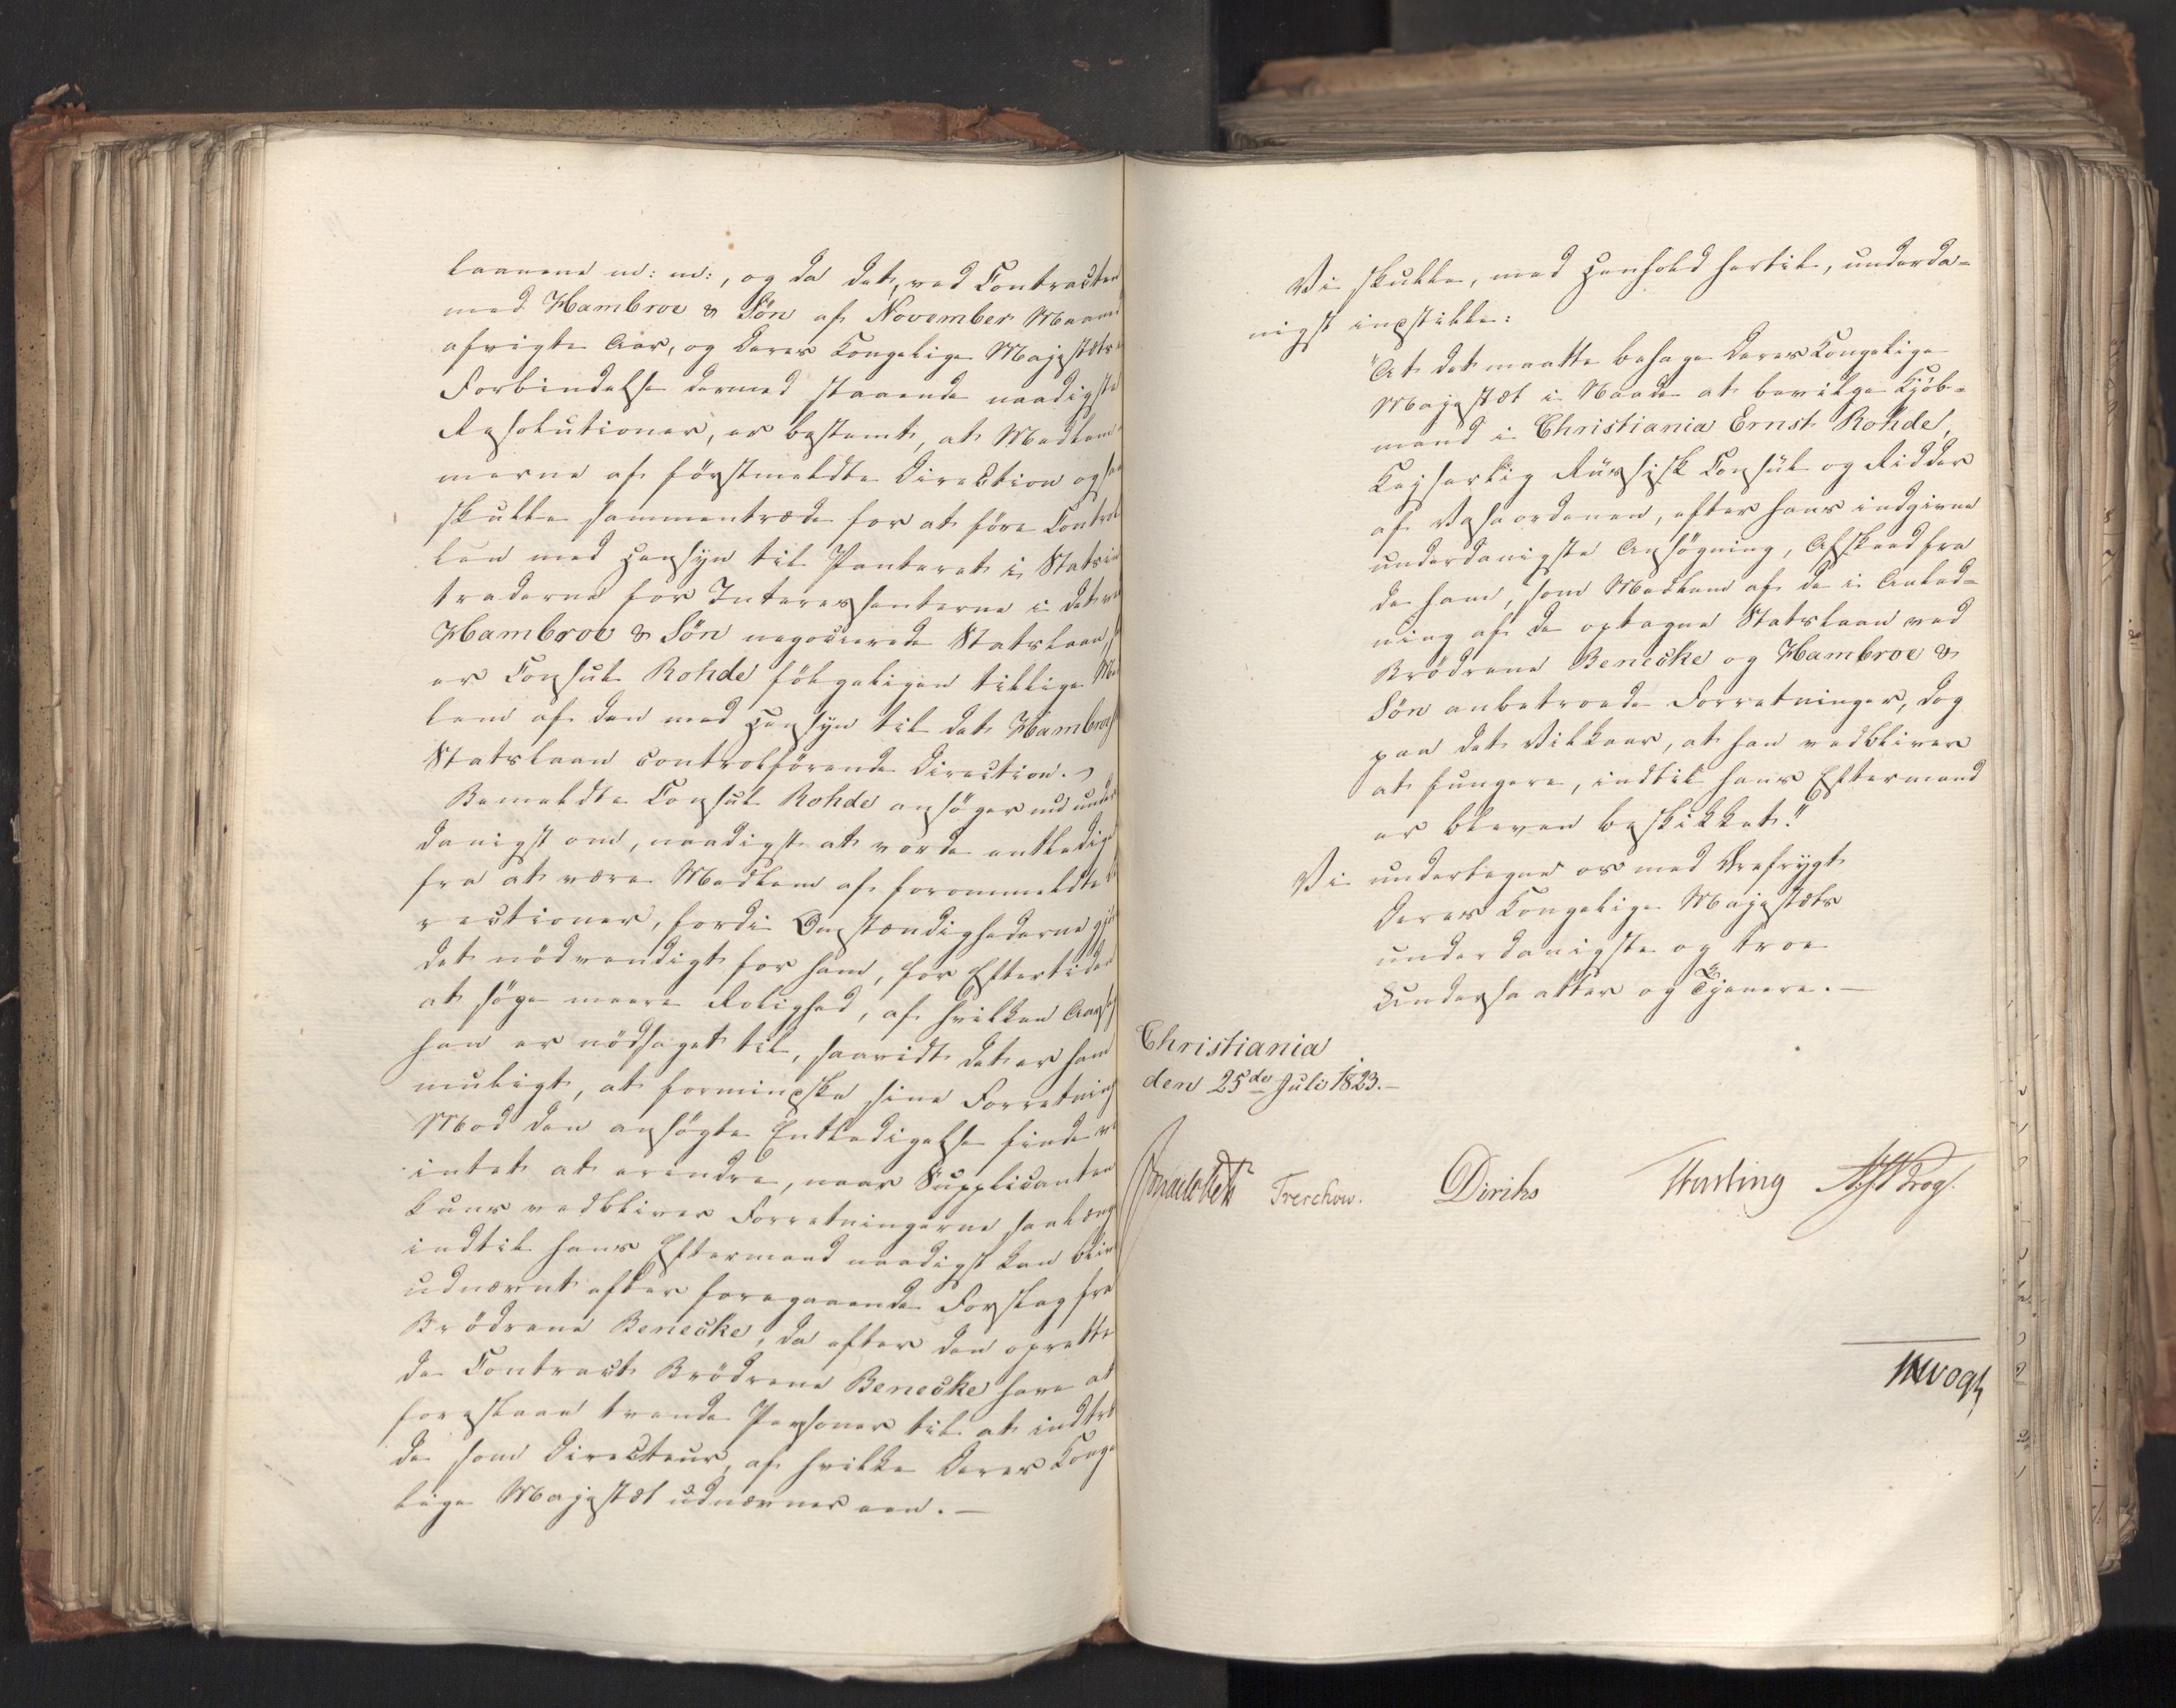 laanene m: m:, og da det, ved Contracten
med Hambroe & Søn af November Maaned
afvigte Aar, og Deres Kongelige Majestæts i
Forbindelse dermed staaende naadigste
Resolutioner, er bestemt, at Medlem-
merne af førstmeldte Direction ogsaa
skulle sammentræde for at føre Contro
len med Hensyn til Panteret i Statsin
traderne for Interessenterne i det ved
Hambroe & Søn negocierede Statslaan, så
er Consul Rohde følgeligen tillige Med
lem af den med Hensyn til det Hambroeske
Statslaan controlførende Direction.
Bemeldte Consul Rohde ansøger nu under
danigst om, naadigst at vorde entledige
fra at være Medlem af forommeldte Di
rectioner, fordi Omstændighederne gjør
det nødvendigt for ham, for Eftertiden
at søge meere Rolighed, af hvilken Aarsag
han er nødsaget til, saavidt det er ham
muligt, at formindske sine Forretning
Mod den ansøgte Entledigelse finde vi
intet at erindre, naar Supplicanten
kuns vedbliver Forretningerne saalænge
indtil hans Eftermand naadigst kan bliv
udnævnt efter foregaaende Forslag fra
Brødrene Benecke, da efter den oprette
de Contract Brødrene Benecke have at
foreslaae trende Personer til at indtræ
de som Directeur, af hvilke Deres Konge
lige Majestæt udnævner een.—
Vi skulle, med Henhold hertil, underda-
nigst indstille:
"At det maatte behage Deres Kongelige
Majestæt i Naade at bevilge Kjøb-
mand i Christiania Ernst Rohde,
Kejserlig Russisk Consul og Ridder
af Vasaordenen, efter hans indgivne
underdanigste Ansøgning, Afskeed fra
de ham, som Medlem af de i Anled-
ning af de optagne Statslaan ved
Brødrene Benecke og Hambroe &
Søn anbetroede Forretninger, dog
paa det Vilkaar, at han vedbliver
at fungere, indtil hans Eftermand
er bleven beskikket."
Vi undertegne os med Ærefrygt
Deres Kongelige Majestæts
underdanigste og troe
Undersaatter og Tjenere.—
Christiania
den 25de Juli 1823.—
Treschow. Diriks